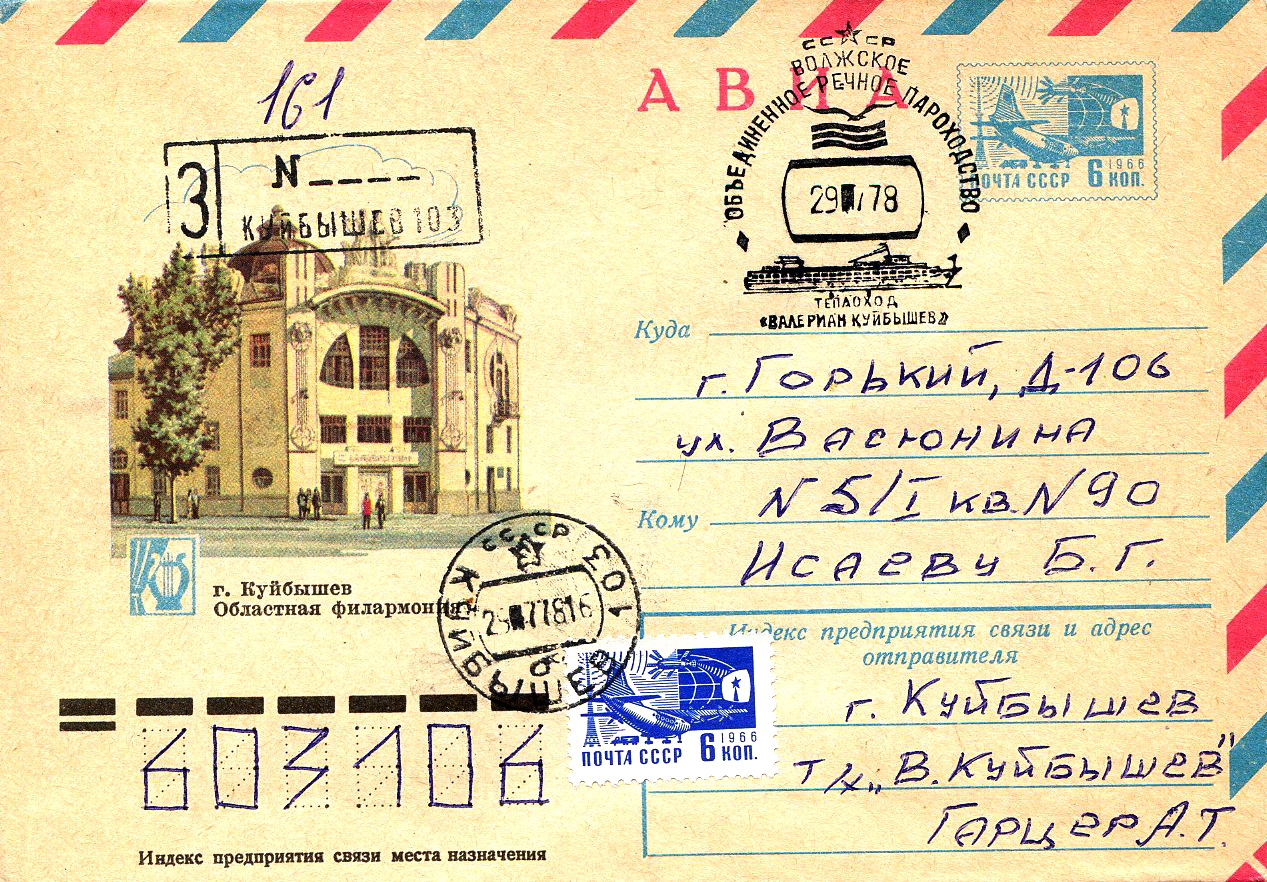 161
З
N
КУЙБЫШЕВ 103
АВИА
СССР
ВОЛЖСКОЕ
ОБЪЕДИНЕННОЕ РЕЧНОЕ ПАРОХОДСТВО
78
ТЕПЛОХОД
«ВАЛЕРИАН КУЙБЫШЕВ»
1966
ПОЧТА СССР 6 КОП.
Куда
г. Горький, Д-106
ул. Васюнина
N 5/I кв. N 90
Кому
Исаеву Б. Г.
г. Куйбышев
Областная филармония
СССР
КУЙБЫШЕВ 103
Индекс предприятия связи и адрес
отправителя
г. Куйбышев
т/х „В. Куйбышев"
Гарцер А. Т.
1966
ПОЧТА СССР 6 КОП.
603106
Индекс предприятия связи места назначения